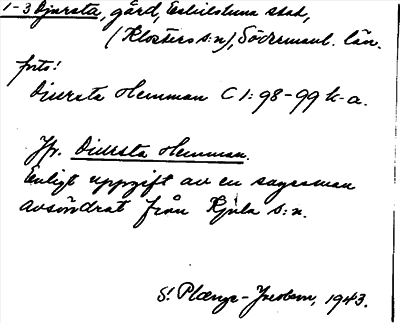 1-3 Djursta, gård, Eskilstuna stad,
(Klosters s:n), Södermanl. län.
Djursta Hemman C 1: 98-99 k-a.
Jfr. Djursta Hemman.
Enligt uppgift av en sagesman
avsöndrat från Kjula s:n.
S! 1943.